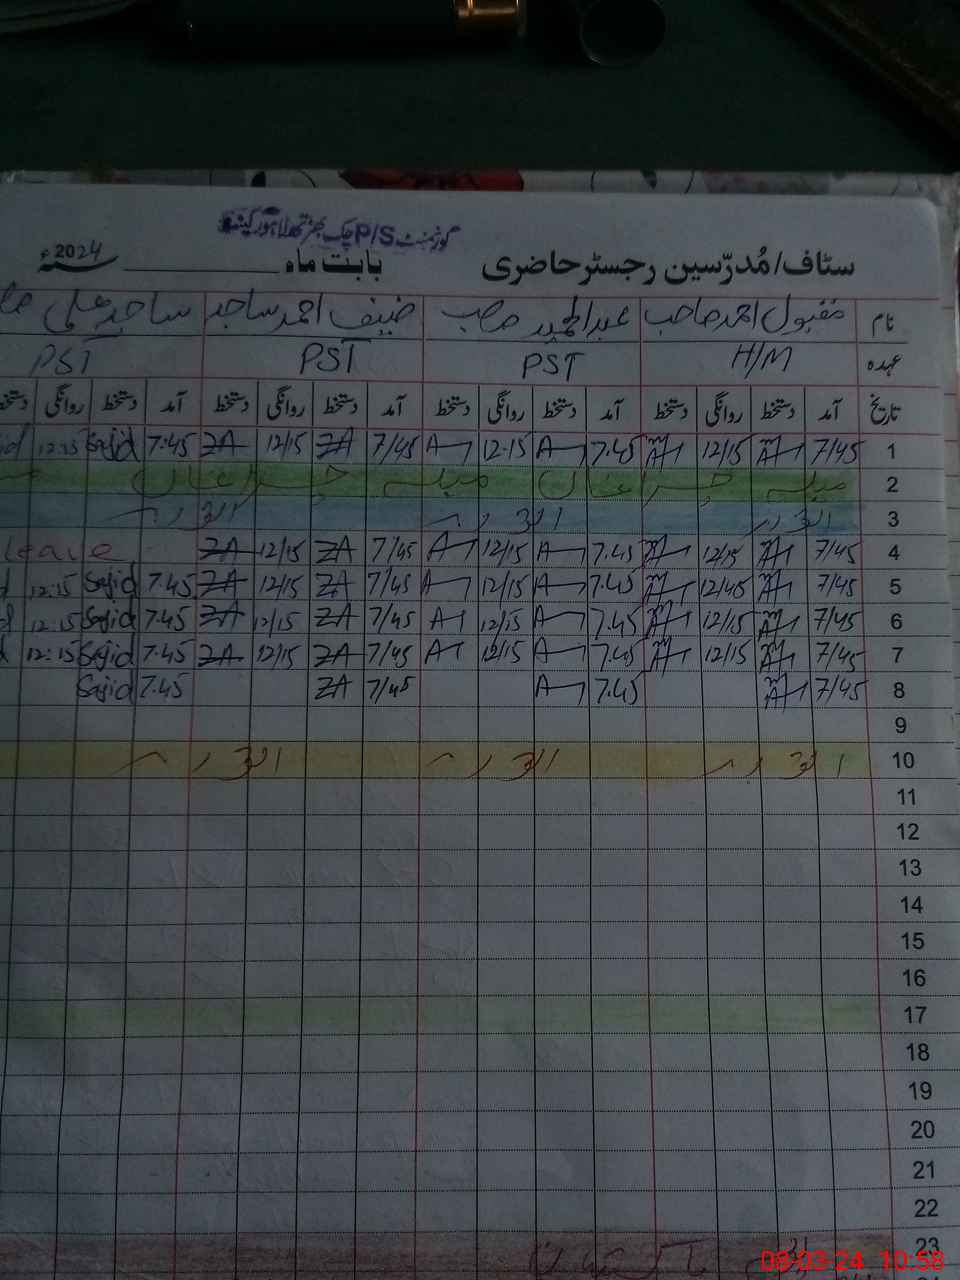 گورنمنٹ P/S چک
سٹاف/مُدرّسین رجسٹر حاضری بابت ماہ ــــــــــ سنہ 2024ء
نام مقبول احمد صاحب عبدالحمید صاحب ضیف احمد ساجد ساجد علی
عہدہ H/M PST PST PST
تاریخ آمد دستخط روانگی دستخط آمد دستخط روانگی دستخط آمد دستخط روانگی دستخط آمد دستخط روانگی دستخط
1 7/45 12/15 7.45 A 12.15 A 7/45 ZA 12/15 ZA 7:45 Sajid 12:15
2 میلہ چراغاں میلہ چراغاں
3 اتوار اتوار اتوار
4 7/45 12/15 7.45 A 12/15 A 7/45 ZA 12/15 ZA Leave
5 7/45 12/45 7.45 A 12/15 A 7/45 ZA 12/15 ZA 7.45 Sajid 12:15
6 7/45 12/15 7.45 A 12/15 A 7/45 ZA 12/15 ZA 7.45 Sajid 12:15
7 7/45 12/15 7.45 A 12/15 A 7/45 ZA 12/15 ZA 7.45 Sajid 12:15
8 7/45 7.45 A 7/45 ZA 7.45 Sajid
9
10 اتوار اتوار اتوار
11
12
13
14
15
16
17
18
19
20
21
22
23
08-03-24 10:58